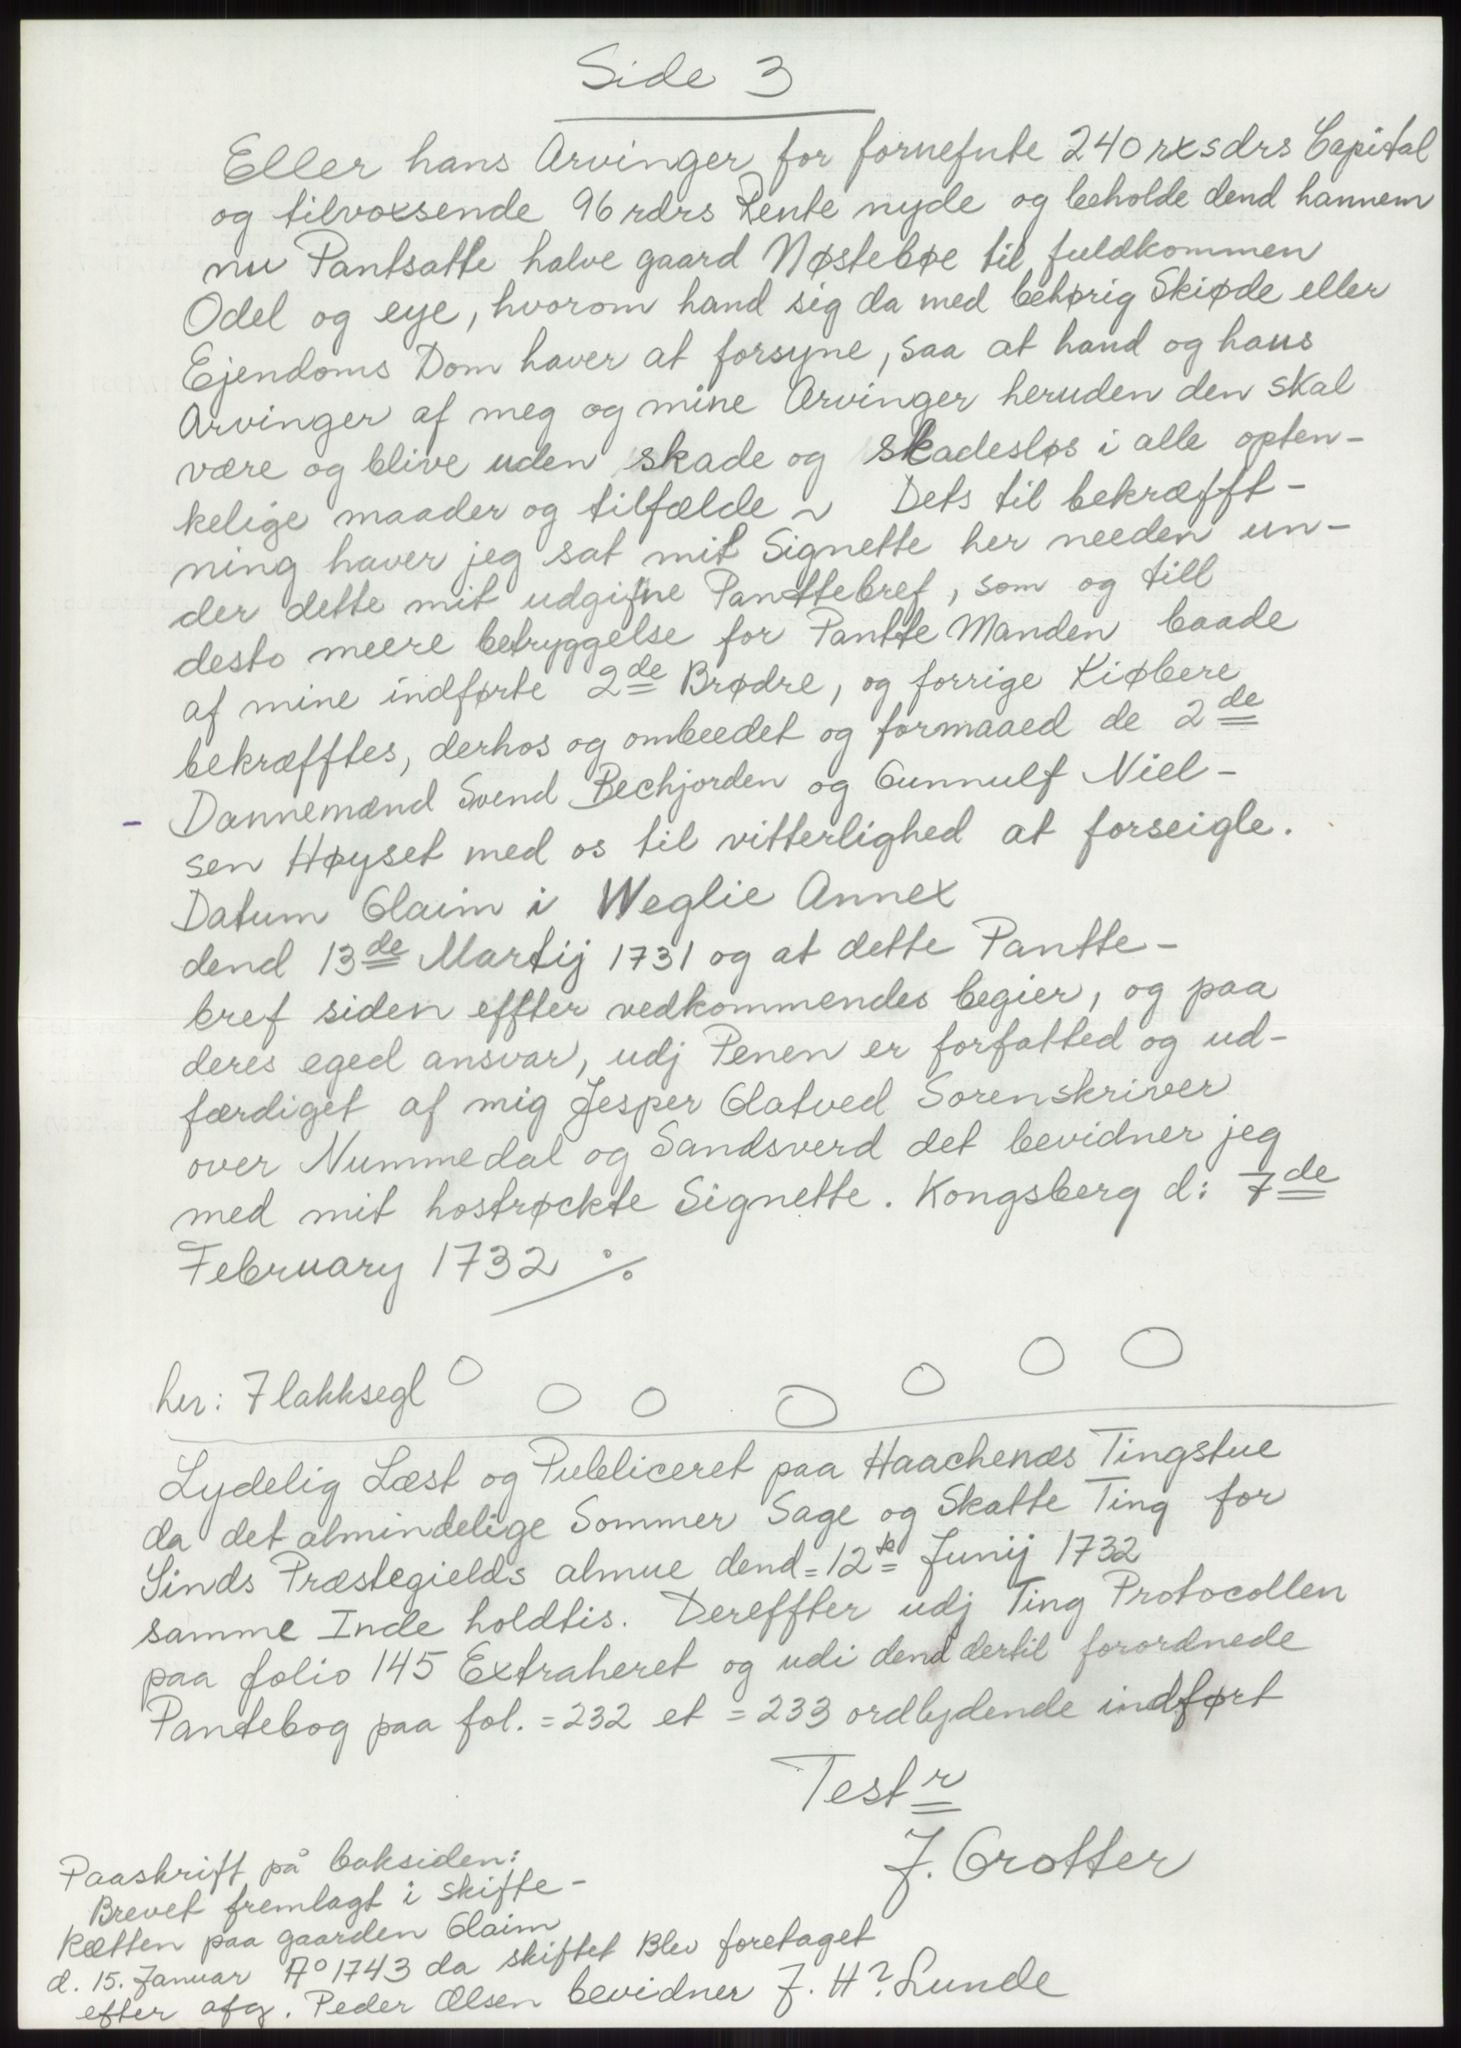 Side 3
Eller hans Arvinger for fornefnte 240 rxsdrs Capital
og tilvoxsende 96 rdrs Rente nyde og beholde dend hannem
nu Pantsatte halve gaard Nøstebøe til fuldkommen
Odel og eye, hvorom hand sig da med behørig Skiøde eller
Ejendoms Dom haver at forsyne, saa at hand og hans
Arvinger af meg og mine Arvinger heruden den skal
være og blive uden skade og skadesløs i alle opten-
kelige maader og tilfælde ~ Dets til bekræfft-
ning haver jeg sat mit Signette her needen un-
der dette mit udgifne Panttebref, som og till
desto meere betryggelse for Pantte Manden baade
af mine indførte 2de Brødre, og forrige Kiøbere
bekræfftes, derhos og ombeedet og formaaed de 2de
- Dannemænd Svend Bechjorden og Gunnulf Niel-
sen Høyset med os til vitterlighed at forseigle.
Datum Glaim i Weglie Annex
dend 13de Martij 1731 og at dette Pantte-
bref siden effter vedkommendes begier, og paa
deres eged ansvar, udj Penen er forfatted og ud-
færdiget af mig Jesper Glatved Sorenskriver
over Nummedal og Sandsverd det bevidner jeg
med mit hostrøckte Signette. Kongsberg d: 7de
February 1732 ./.
her: 7 lakksegl
Lydelig Læst og Publiceret paa Haachenæs Tingstue
da det almindelige Sommer Sage og Skatte Ting for
Sinds Præstegields almue dend = 12te = Junij 1732
samme Inde holdtis. Dereffter udj Ting Protocollen
paa folio 145 Extraheret og udi dend dertil forordnede
Pantebog paa fol. = 232 et = 233 ordlydende indført
Test r
J. Grotter
Paaskrift på baksiden:
Brevet fremlagt i skifte-
Rætten paa gaarden Glaim
d. 15. Januar Ao 1743 da skiftet Blev foretaget
efter afg. Peder Olsen bevidner J. H? Lunde